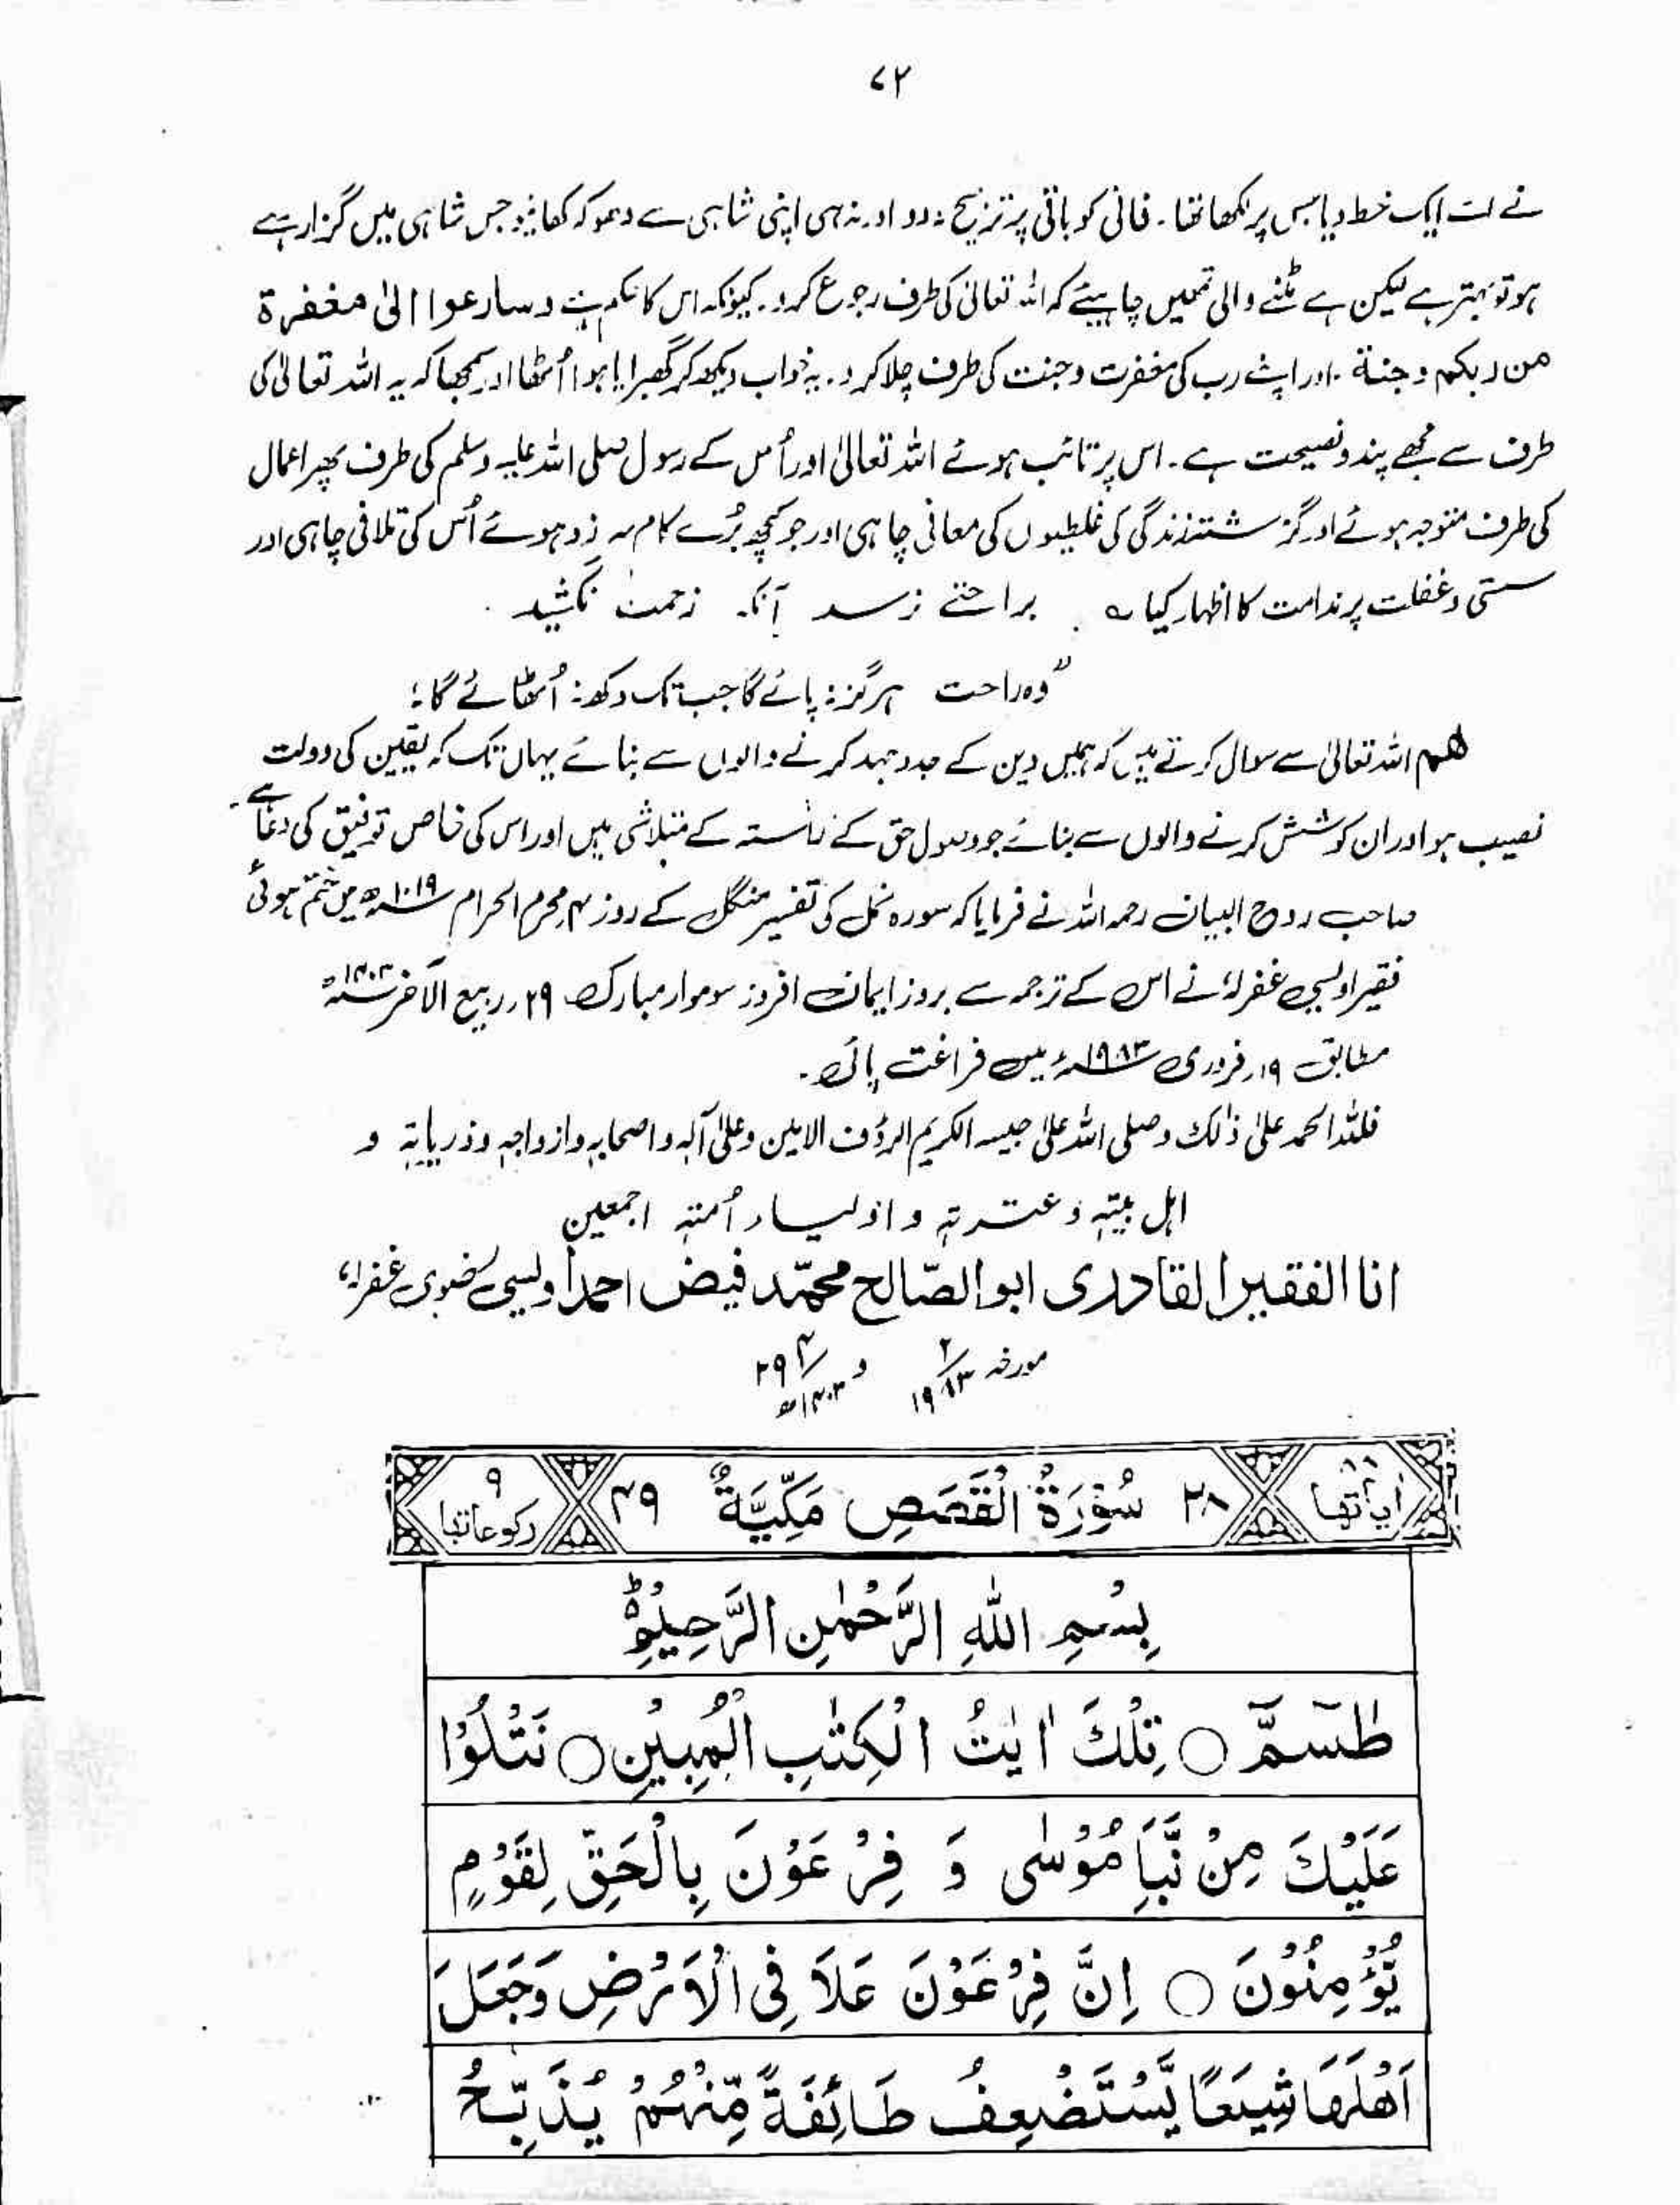 ۷۲
نے اسے ایک خط دیا جس پر لکھا تھا۔ فانی کو باقی پر ترجیح نہ دو اور نہ ہی اپنی شاہی سے دھوکہ کھائیو جس شاہی میں گزار رہے
ہو تو بہتر ہے لیکن ہے مٹنے والی تمہیں چاہیئے کہ اللہ تعالیٰ کی طرف رجوع کرو۔ کیونکہ اس کا حکم ہے وسارعوا الیٰ مغفرۃ
من ربکم وجنۃ ۔ اور اپنے رب کی مغفرت وجنت کی طرف چلا کرو۔ یہ خواب دیکھ کر گھبرایا ہوا اُٹھا اور سمجھا کہ یہ اللہ تعالیٰ کی
طرف سے مجھے پند و نصیحت ہے۔ اس پر تائب ہوئے اللہ تعالیٰ اور اُس کے رسول صلی اللہ علیہ وسلم کی طرف پھر اعمال
کی طرف متوجہ ہوئے اور گزشتہ زندگی کی غلطیوں کی معافی چاہی اور جو کچھ بُرے کام سرزد ہوئے اُس کی تلافی چاہی اور
سستی وغفلت پر ندامت کا اظہار کیا ؎ براحتے نرسد آنکہ زحمت نکشید ۔
"وہ راحت ہرگز نہ پائے گا جب تک دکھ نہ اُٹھائے گا؛
ھم اللہ تعالیٰ سے سوال کرتے ہیں کہ ہمیں دین کے جدوجہد کرنے والوں سے بنائے یہاں تک کہ یقین کی دولت
نصیب ہو اور ان کوشش کرنے والوں سے بنائے جو وصول حق کے راستہ کے متلاشی ہیں اور اس کی خاص توفیق کی دعا ہے۔
صاحب روح البیان رحمہ اللہ نے فرمایا کہ سورہ نمل کی تفسیر منگل کے روز ۴ محرم الحرام ۱۰۱۹ھ میں ختم ہوئی
فقیر اویسی غفرلہٗ نے اس کے ترجمہ سے بروز ایمان افروز سوموار مبارک ۲۹ ربیع الآخر ۱۴۰۳ھ
مطابق ۱۹ فروری ۱۹۸۳ء میں فراغت پائی۔
فللّٰہ الحمد علیٰ ذٰلک وصلی اللہ علیٰ حبیبہ الکریم الرؤف الامین وعلیٰ آلہٖ واصحابہٖ وازواجہٖ وذریاتہٖ و
اہل بیتہٖ وعترتہٖ واولیاء اُمتہٖ اجمعین
انا الفقیر القادری ابوالصّالح محمّد فیض احمد اُویسی رضوی غفرلہٗ
مورخہ ۲/۱۹۸۳ و ۲۹/۴/۱۴۰۳ھ
اٰیاتُها ٨٨ ۲۸ سُوْرَةُ الْقَصَصِ مَكِّيَّةٌ ۴۹ رکوعاتها ۹
بِسْمِ اللهِ الرَّحْمٰنِ الرَّحِيْمِ ؕ
طٰسٓمّٓ ○ تِلْكَ اٰيٰتُ الْكِتٰبِ الْمُبِيْنِ ○ نَتْلُوْا
عَلَيْكَ مِنْ نَّبَاِ مُوْسٰى وَ فِرْعَوْنَ بِالْحَقِّ لِقَوْمٍ
يُّؤْمِنُوْنَ ○ اِنَّ فِرْعَوْنَ عَلَا فِى الْاَرْضِ وَجَعَلَ
اَهْلَهَا شِيَعًا يَّسْتَضْعِفُ طَائِفَةً مِّنْهُمْ يُذَبِّحُ